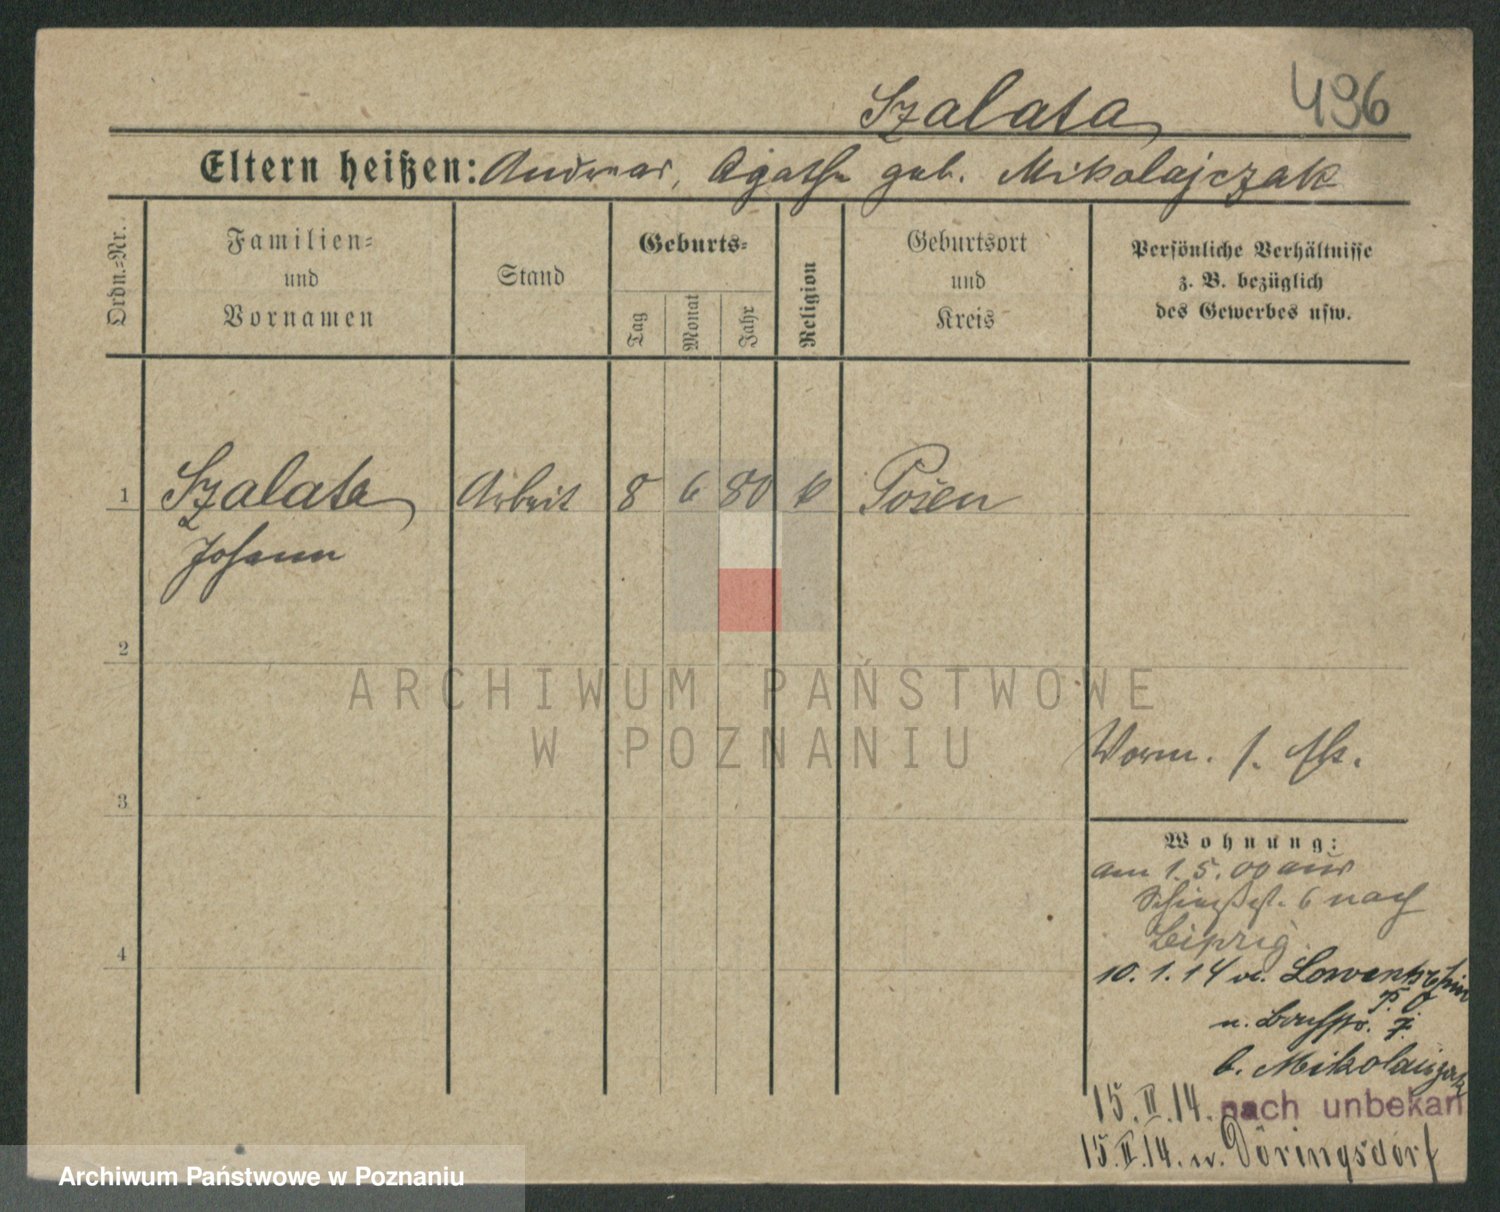 Szalata 496
Eltern heißen: Andreas, Agathe geb. Mikolajczak
Ordn.-Nr.
Familien-
und
Vornamen
Stand
Geburts-
Tag
Monat
Jahr
Religion
Geburtsort
und
Kreis
Persönliche Verhältnisse
z. B. bezüglich
des Gewerbes usw.
1 Szalata Arbeit 8 6 80 k Posen
Johann
2
ARCHIWUM PAŃSTWOWE
W POZNANIU
Vorm.
3
Wohnung:
am 1. 5. 00 aus
6 nach
Leipzig.
4
10. 1. 14 v.
n.
b. Mikolaiczak
15. II. 14. nach unbekan
15. II. 14. n. Döringsdorf
Archiwum Państwowe w Poznaniu